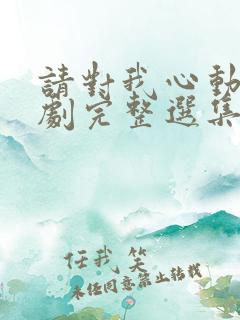 請對我心動
劇完整選集
任我笑
未经同意禁止转载